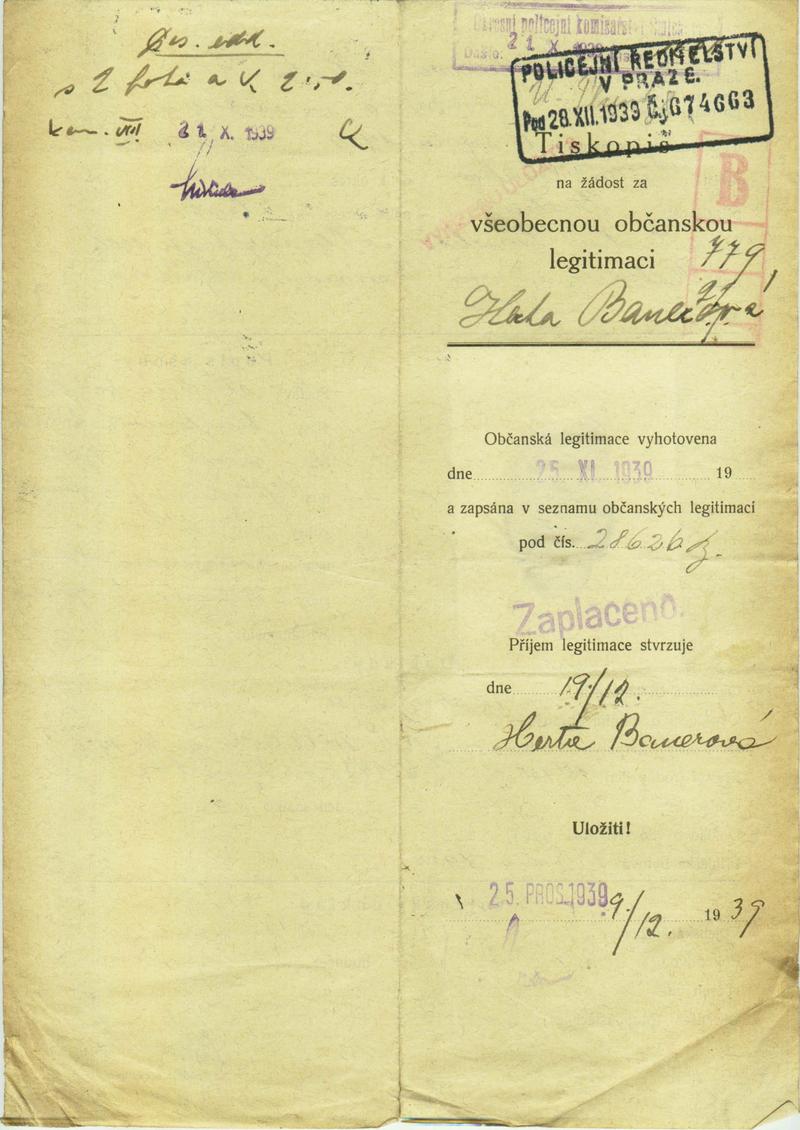 s 2 fota a K 2.50.
kom. VIII 21 X. 1939
Okresní policejní komisařství
21 X 1939
POLICEJNÍ ŘEDITELSTVÍ
V PRAZE.
Pod 28.XII.1939 Čj 674663
Tiskopis
na žádost za
B
všeobecnou občanskou
legitimaci 779
Herta Bauerová
Občanská legitimace vyhotovena
dne 25 XI 1939 19
a zapsána v seznamu občanských legitimací
pod čís. 28626
Zaplaceno.
Příjem legitimace stvrzuje
dne 19/12.
Herta Bauerová
Uložiti!
25. PROS. 1939 9/12. 1939